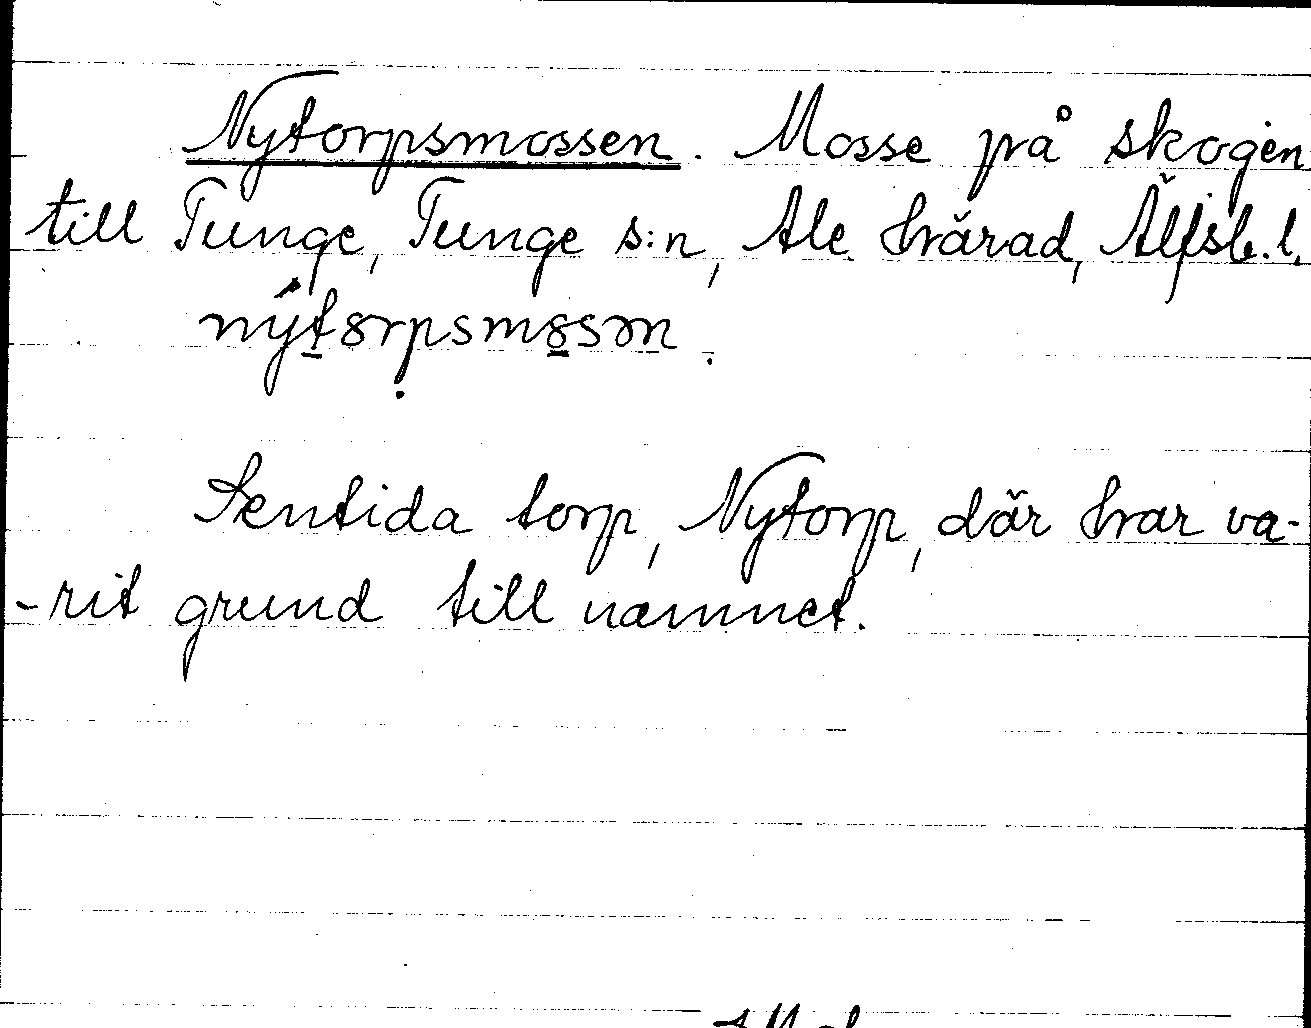 Nytorpsmossen. Mosse på skogen
till Tunge, Tunge s:n, Ale härad, Älfsb. l.
nýtørpsmøsən.
Sentida torp, Nytorp, där har va-
-rit grund till namnet.